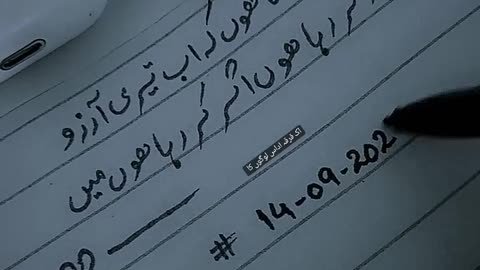 ھوں کہ اب تیری آرزو
کر رہا ھوں اثر کر رہا ھوں میں
اک فرقہ اداس لوگوں کا
# 14-09-202